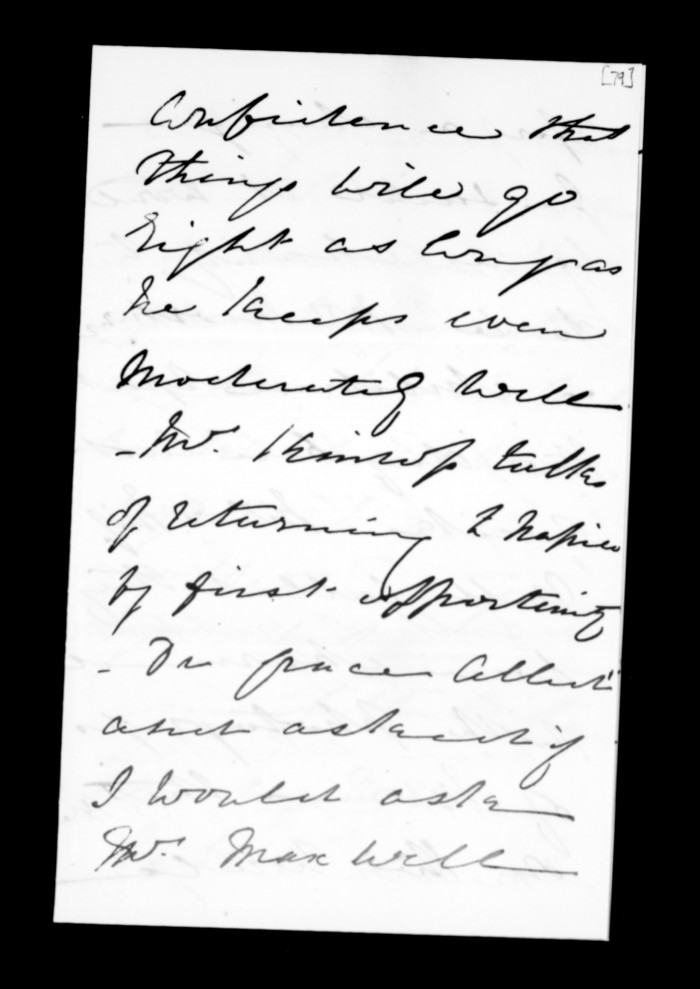 [79]
Confidence that
things will go
right as long as
he keeps even
moderately well
- Mr. Kinross talks
of returning to Napier
by first opportunity
- Dr Grace called
and asked if
I would ask
Mr. Maxwell